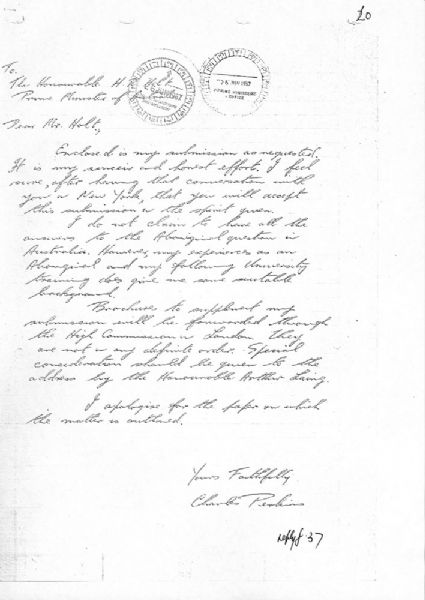 20
To,
The Honourable H. Holt
Prime Minister of
PRIME MINISTERS
OFFICE
Dear Mr. Holt,
Enclosed is my submission as requested.
It is my sincere and honest efforts. I feel
sure, after having that conversation with
you in New York, that you will accept
this submission in the spirit given.
I do not claim to have all the
answers to the Aboriginal question in
Australia. However, my experiences as an
Aboriginal and my following University
training does give me some suitable
background.
Brochures to supplement my
submission will be forwarded through
the High Commission in London they
are not in any definite order. Special
consideration should be given to the
address by the Honourable Arthur Laing.
I apologise for the paper on which
the matter is outlined.
Yours Faithfully
Charles Perkins
reply f 37